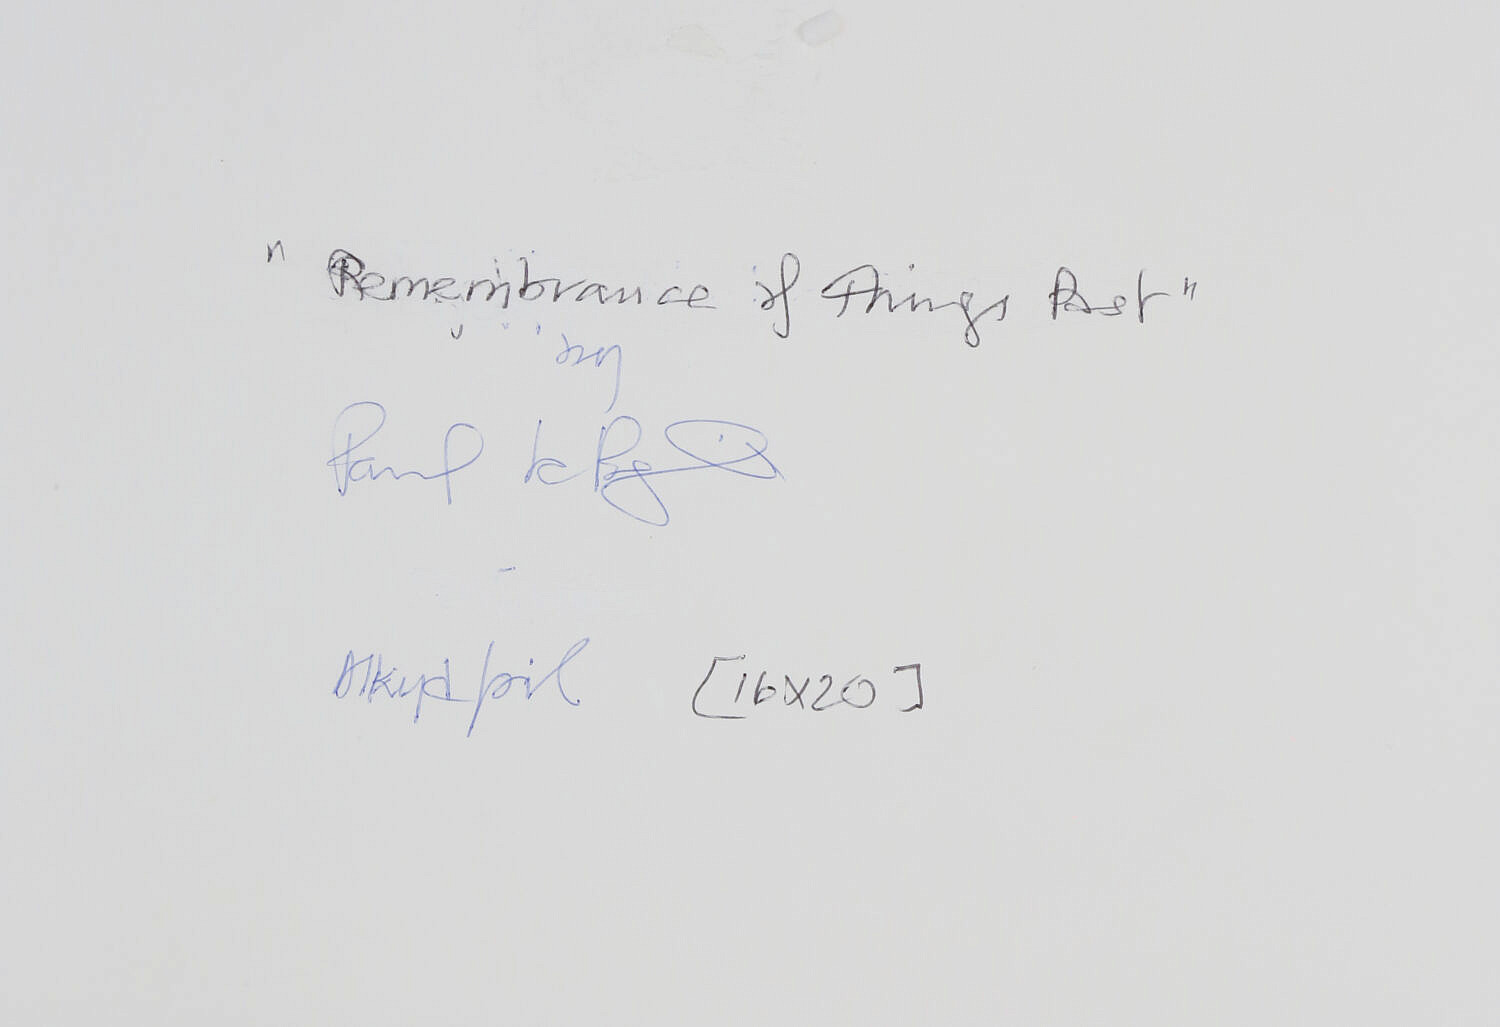 "Remembrance of Things Past"
by
Paul K
Alkyd/oil [16X20]